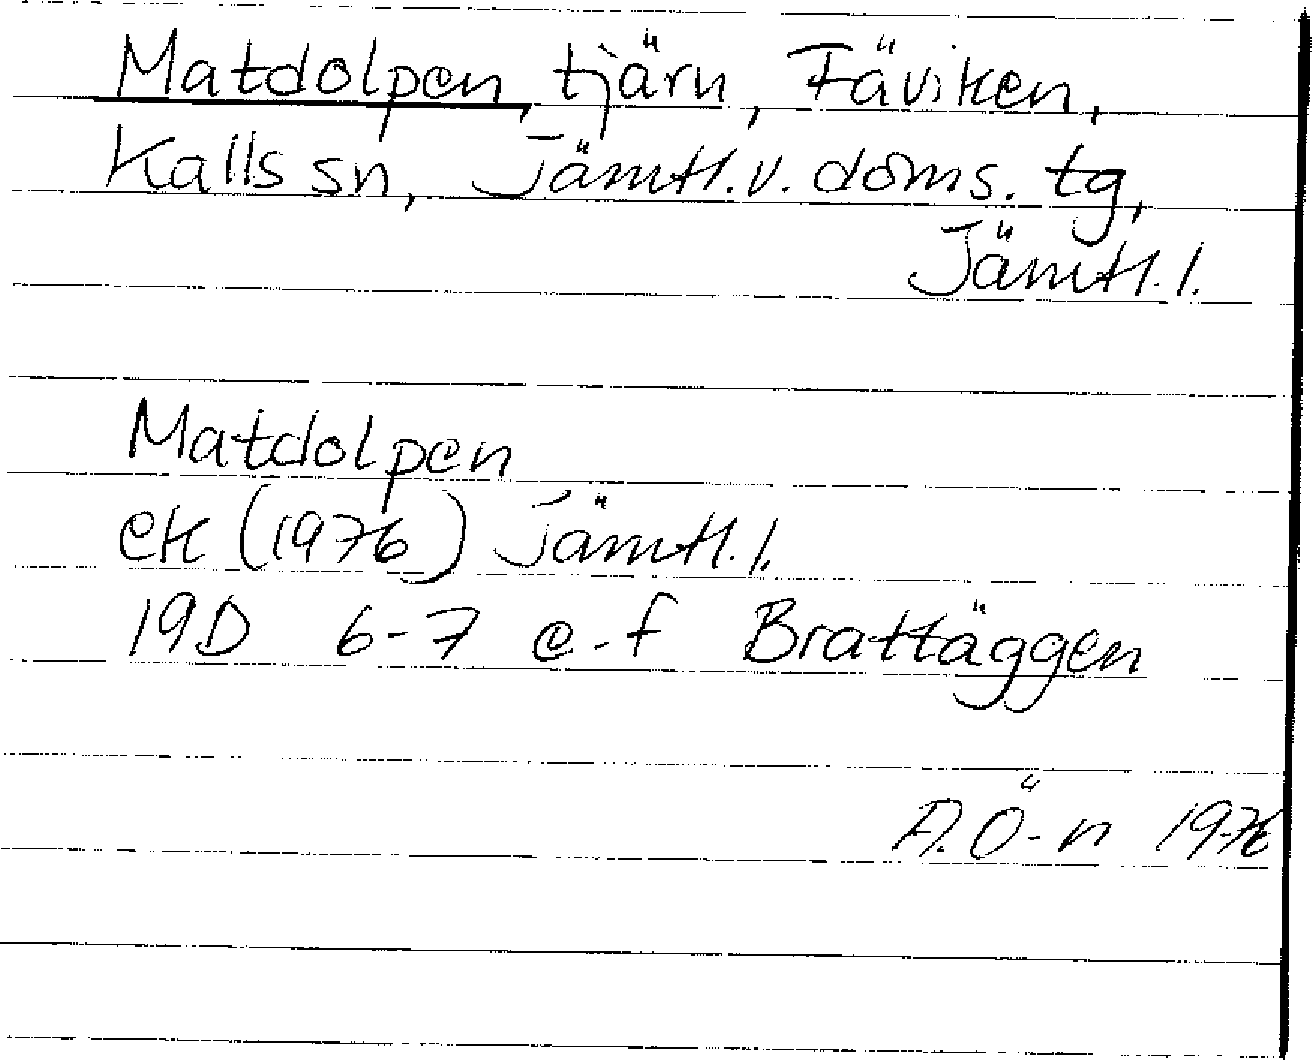 Matdolpen, tjärn, Fäviken,
Kalls sn, Jämtl. v. doms. tg,
Jämtl. l.
Matdolpen
ek (1976) Jämtl. l.
19D 6-7 e-f Brattäggen
A. Ö-n 1976